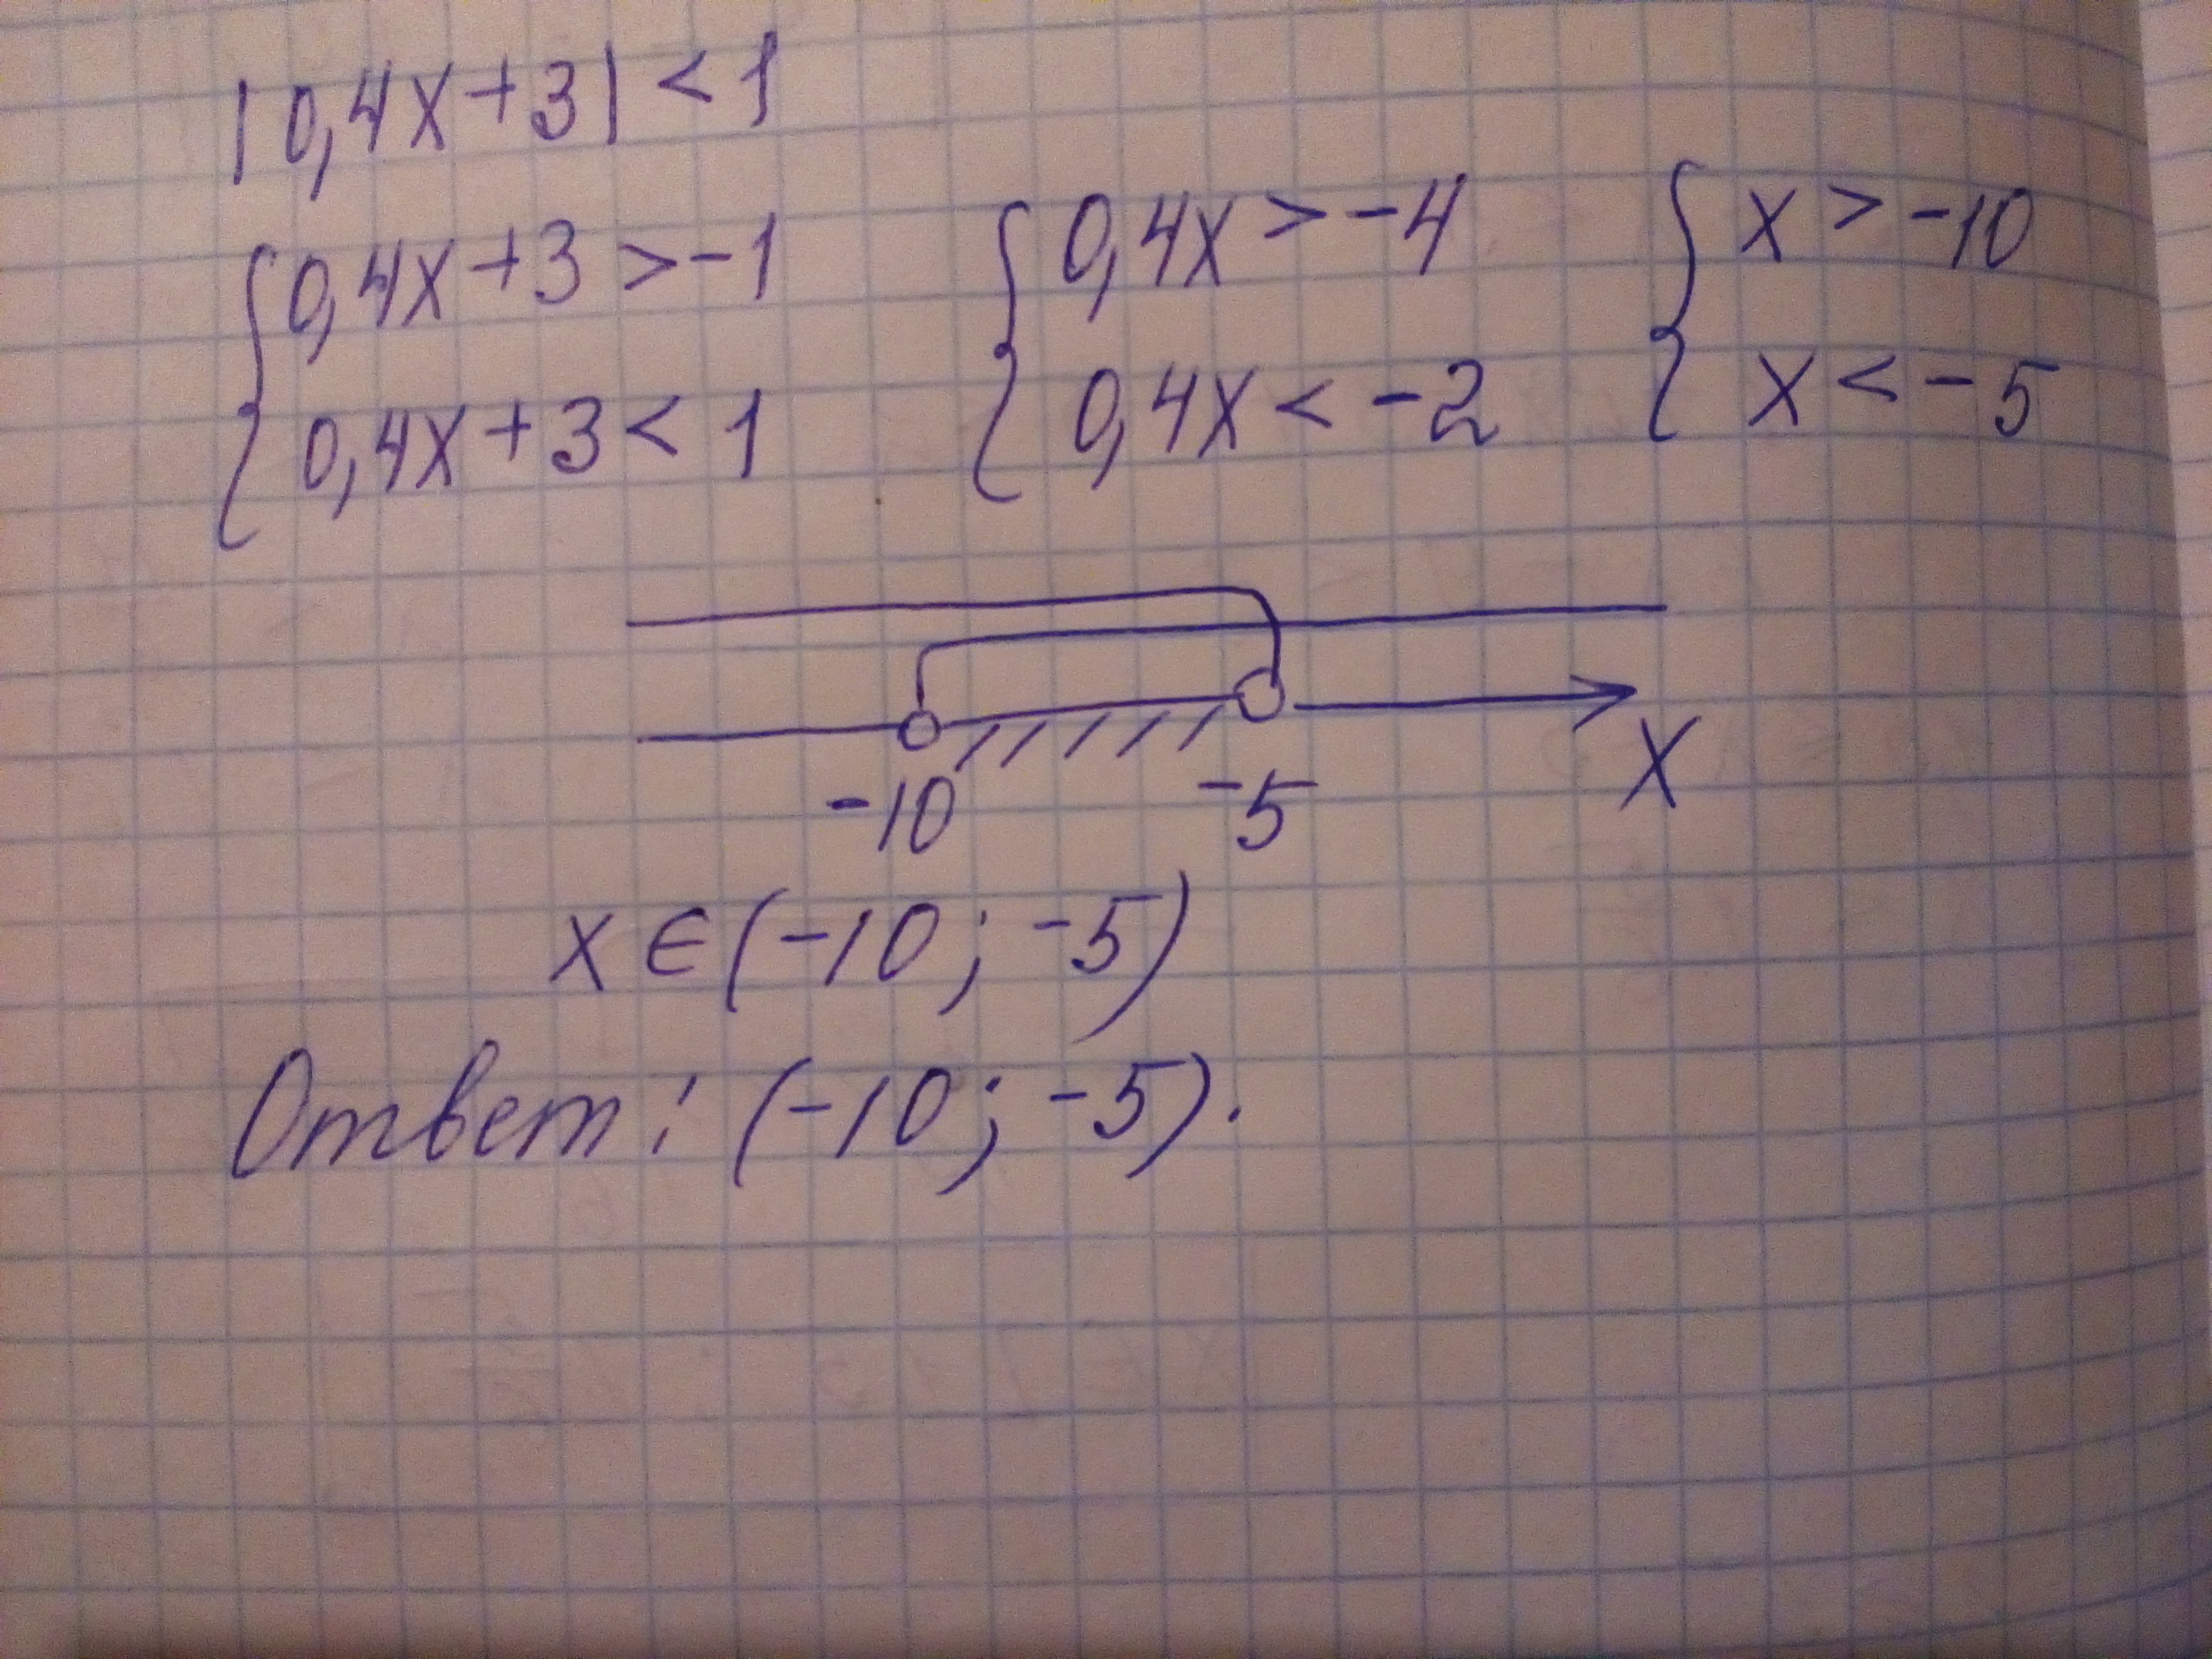 |0,4x+3|<1
{0,4x+3>-1 {0,4x>-4 {x>-10
0,4x+3<1 0,4x<-2 x<-5
-10 -5 x
x∈(-10;-5)
Ответ: (-10;-5).